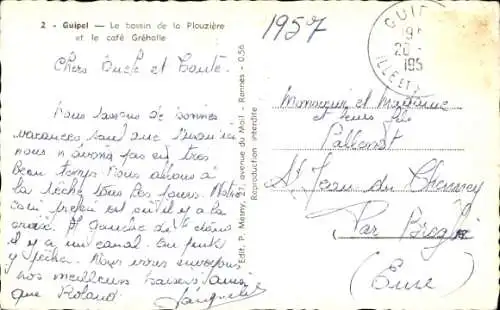 2 - Guipel — Le bassin de la Plouzière
et le café Gréhalle
1957
GUIP
19
20
195
ILLE ET
Chers Oncle et Tante
Nous passons de bonnes
vacances sauf que
nous n'avons pas eu très
beau temps. Nous allons à
la pêche tous les jours. Notre
coin préféré est où il y a la
croix. A gauche de
il y a un canal. On peut
y pêcher. Nous vous envoyons
nos meilleurs baisers ainsi
que Roland.
Jacqueline
Edit. P. Mesny, 27, avenue du Mail - Rennes - 0,56
Reproduction interdite
Monsieur et Madame
et leurs fils
St Jean du
Par Broglie
(Eure)